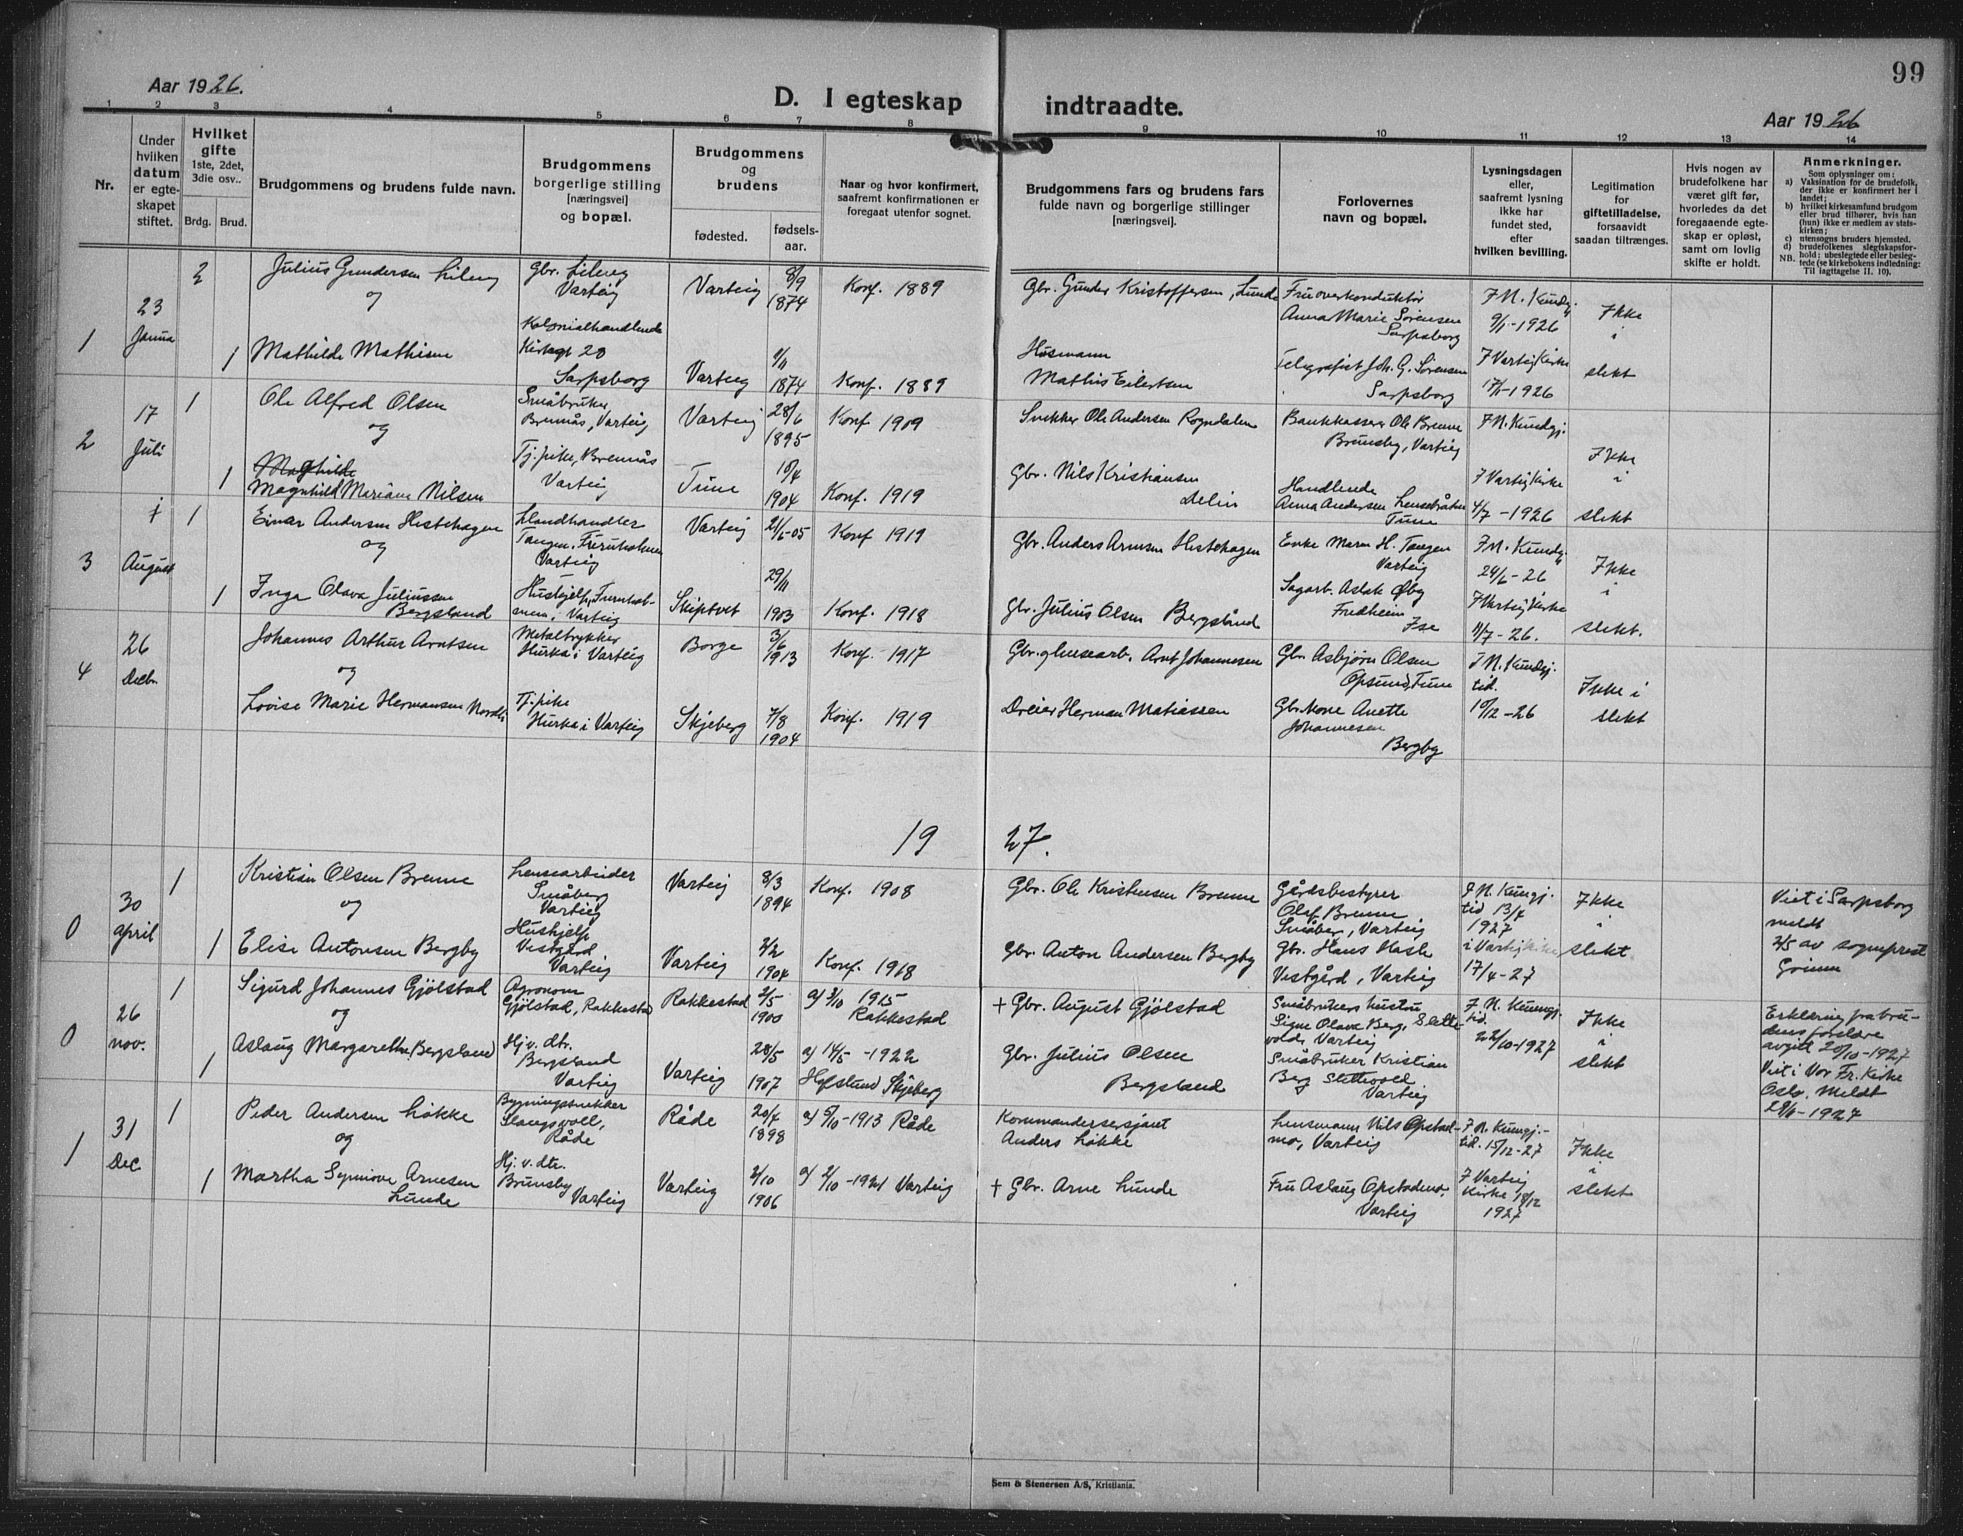 99
Aar 1926.
D. I egteskap indtraadte.
Aar 1926
1 2 3 4 5 6 7 8 9 10 11 12 13 14
Nr.
Under hvilken datum er egteskapet stiftet.
Hvilket gifte 1ste, 2det, 3die osv..
Brdg. Brud.
Brudgommens og brudens fulde navn.
Brudgommens borgerlige stilling [næringsvei] og bopæl.
Brudgommens og brudens
fødested. fødselsaar.
Naar og hvor konfirmert, saafremt konfirmationen er foregaat utenfor sognet.
Brudgommens fars og brudens fars fulde navn og borgerlige stillinger [næringsvei].
Forlovernes navn og bopæl.
Lysningsdagen eller, saafremt lysning ikke har fundet sted, efter hvilken bevilling.
Legitimation for giftetilladelse, forsaavidt saadan tiltrænges.
Hvis nogen av brudefolkene har været gift før, hvorledes da det foregaaende egteskap er opløst, samt om lovlig skifte er holdt.
Anmerkninger.
Som oplysninger om:
a) Vaksination for de brudefolk, der ikke er konfirmert her i landet;
b) hvilket kirkesamfund brudgom eller brud tilhører, hvis han (hun) ikke er medlem av statskirken;
c) utensogns bruders hjemsted.
d) brudefolkenes slegtskapsforhold: ubeslegtede eller beslegtede (se kirkebokens indledning:
NB. Til iagttagelse II. 10).
1
23 Janua
2
Julius Gundersen Lileng
og
Gbr. Lileng Varteig
Varteig
8/9 1874
Konf. 1889
Gbr. Gunder Kristoffersen, Lunde
Fru overkonduktør Anna Marie Sørensen Sarpsborg
I N. Kundg. 9/1-1926
Ikke i slekt
1
Mathilde Mathisen
Kolonialhandlende Kirkegt 20 Sarpsborg
Varteig
1/11 1874
Konf. 1889
Husmann Mathis Eilertsen
Telegrafist Joh. G. Sørensen Sarpsborg
I Varteig Kirke 17/1-1926
2
17 Juli
1
Ole Alfred Olsen
og
Småbruker Brennås, Varteig
Varteig
28/6 1895
Konf 1909
Snekker Ole Andersen Rogndalen
Bankkasserer Ole Brenne Brunsby, Varteig
I N. Kundgj.
Ikke i slekt
1
Magnhild Mariane Nilsen
Tj. pike, Brennås Varteig
Tune
15/4 1904
Konf. 1919
Gbr. Nils Kristiansen Delin
Handlende Anna Andersen Tune
I Varteig Kirke 4/7-1926
3
7 August
1
Einar Andersen Hestehagen
og
Landhandler Tangen, Varteig
Varteig
21/6-05
Konf 1919
Gbr. Anders Arnesen Hestehagen
Enke Maren H. Tangen Varteig
I N. Kundg. 24/6-26
Ikke i slekt.
1
Inga Olava Juliussen Bergsland
Hushjelp, Varteig
Skiptvet
29/11 1903
Konf. 1918
Gbr. Julius Olsen Bergsland
Sagarb. Aslak Øby Fredheim Ise
I Varteig Kirke 11/7-26.
4
26 Decbr.
Johannes Arthur Arntsen
og
Metaltrykker Hurka i Varteig
Borge
3/6 1913
Konf. 1917
Gbr. og lensearb. Arnt Johannesen
Gbr. Asbjørn Olsen Opsund, Tune
I N. Kundgj. tid. 19/12-26
Ikke i slekt
Lovise Marie Hermansen Nordli
Tj. pike Hurka i Varteig
Skjeberg
7/8 1904
Konf. 1919
Dreier Herman Matiassen
Gbr. kone Anette Johannesen Bergby
19 27.
0
30 april
1
Kristian Olsen Brenne
og
Lensearbeider Småberg Varteig
Varteig
8/3 1894
Konf. 1908
Gbr. Ole Kristensen Brenne
Gårdsbestyrer Olaf Brenne, Småber, Varteig
I N. Kungj. tid 13/4 1927
Ikke i slekt
Viet i Sarpsborg meldt 2/5 av sogneprest Grimm
1
Elise Antonsen Bergby
Hushjelp Vestgård Varteig
Varteig
2/2 1904
Konf. 1918
Gbr. Anton Andersen Bergby
Gbr. Hans Hasle Vestgård, Varteig
i Varteig kirke 17/4-27
0
26 nov.
1
Sigurd Johannes Gjølstad
og
Agronom Gjølstad, Rakkestad
Rakkestad
2/5 1900
a) 3/10 1915 Rakkestad
+ Gbr. August Gjølstad
Småbrukers hustru Signe Olava Berg, Slettevold, Varteig
I N. Kungj. tid. 22/10-1927
Ikke i slekt
Erklæring fra brudens foreldre avgitt 20/10-1927 Viet i Vor Fr. Kirke Oslo. Meldt 29/11-1927
1
Aslaug Margarethe (Bergsland)
Hj. v. dtr. Bergsland Varteig
Varteig
28/5 1907
a) 14/5-1922 Hafslund Skjeberg
Gbr. Julius Olsen Bergsland
Småbruker Kristian Berg Slettevold Varteig
1
31 Dec
1
Peder Andersen Løkke
og
Bygningssnekker Slangsvoll, Råde
Råde
20/4 1898
a) 5/10-1913 Råde
Kommandersersjant Anders Løkke
Lensmann Nils Opstadmo, Varteig
I N. Kungj.-tid. 15/12-27
Ikke i slekt
1
Martha Synnøve Arnesen Lunde
Hj. v. dtr. Brunsby Varteig
Varteig
2/10 1906
a) 2/10-1921 Varteig
+ Gbr. Arne Lunde
Fru Aslaug Opstadmo, Varteig
I Varteig Kirke 18/12 1927
Sem & Stenersen A/S, Kristiania.